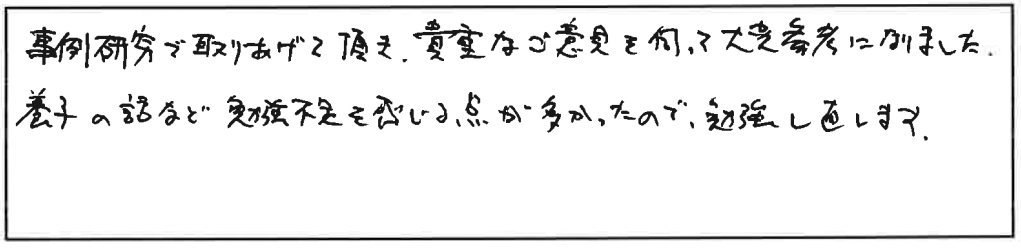 事例研究で取りあげて頂き、貴重なご意見を伺って大変参考になりました。
養子の話など勉強不足を感じる点が多かったので、勉強し直します。